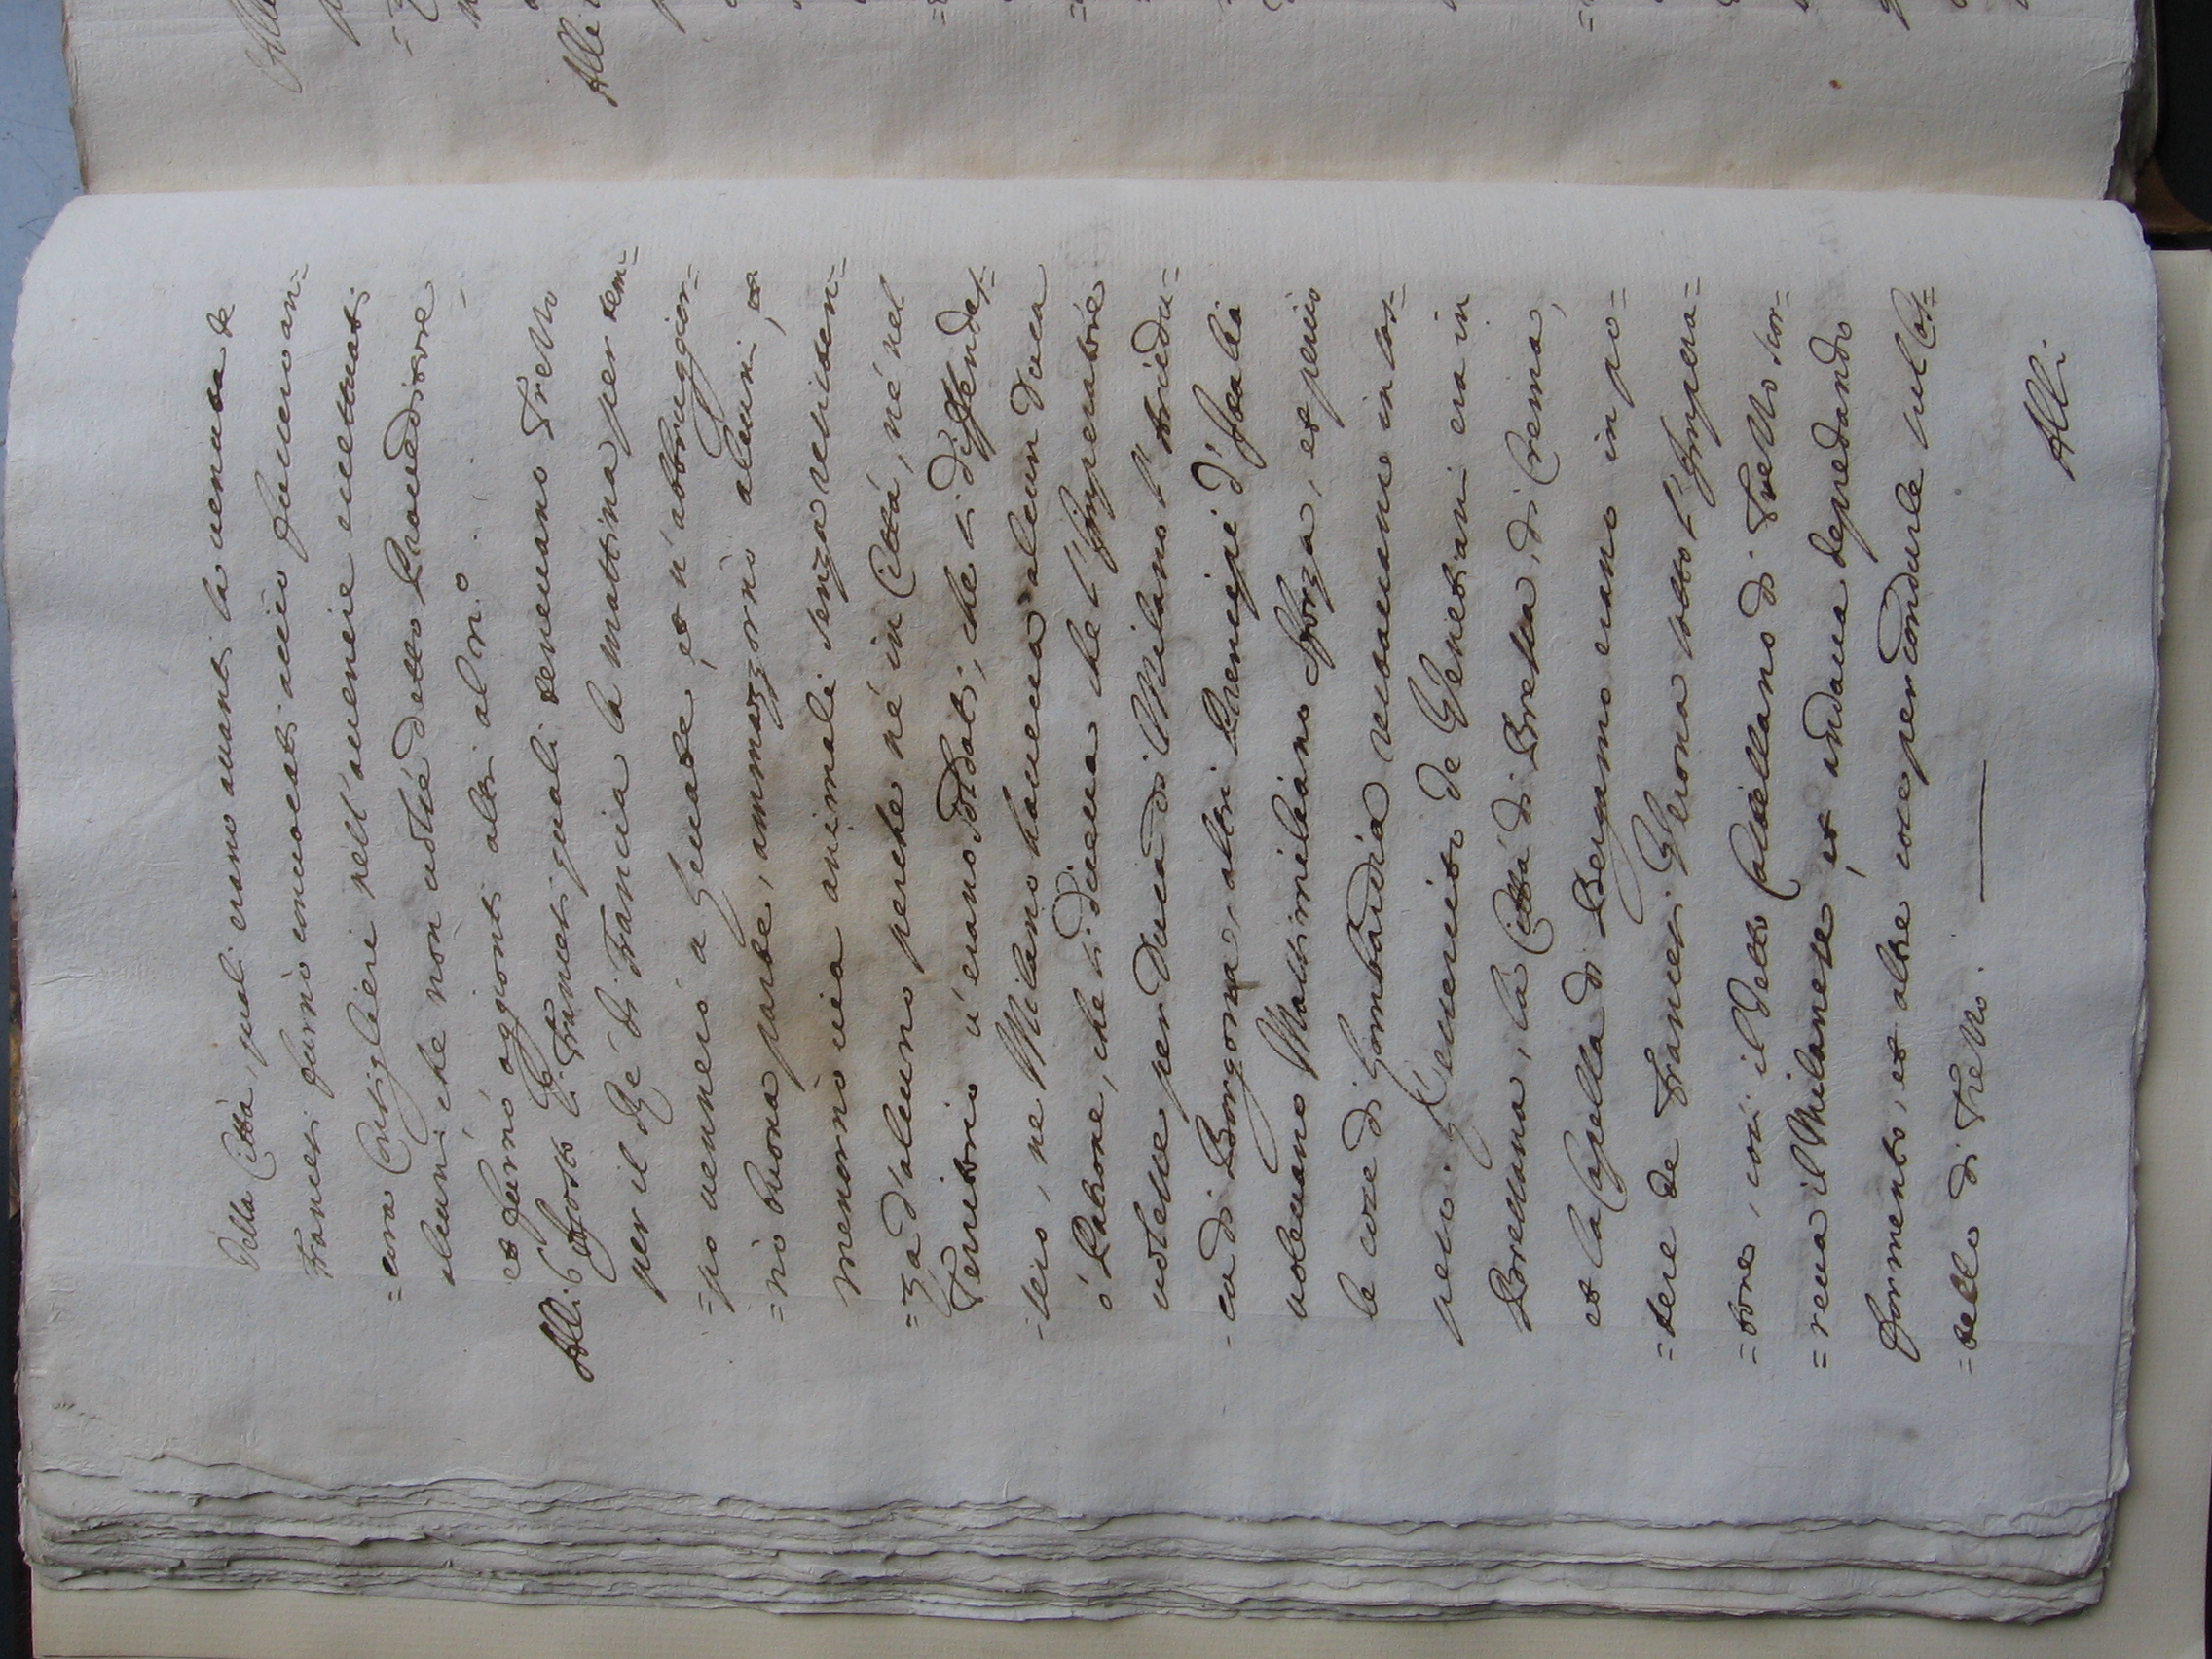 della Città, quali erano avanti la venuta de
Francesi furnò convocati acciò facciano an=
=cora Consiglieri nell'avenire eccettuati
alcuni che non volse detto Proveditore,
et furnò aggionti altri al n.o
Alli 6 Agosto Li Francesi quali tenevano Trezzo
per il Ré di Francia la mattina per tem=
=po vennerò a Levate, et n'abbruggior=
=nò buona parte, ammazzornò alcuni, et
menornò via animali senza resisten=
=za d'alcuno perche né in Città, né nel
Territorio v'erano Soldati, che si diffendes=
=sero, ne Milano haveva alcun Duca
ò Patrone, che si diceva che l'Imperatore
volesse per Duca di Milano l'Arcidu=
=ca di Borgogna, altri Prencipi d'Italia
volevano Massimiliano Sforza, et perciò
le cose di Lombardia restavano in sos=
pesi. L'esercito de Venetiani era in
Bressana, la Città di Brescia, di Crema,
et la Capella di Bergamo erano in po=
=tere de Francesi. Verona sotto l'Impera=
=tore, così il detto Castellano di Trezzo scor=
=reva il Milanese, et andava depredando
formento, et altre cose per condurle nel Cas=
=tello di Trezzo.
Alli
Alli